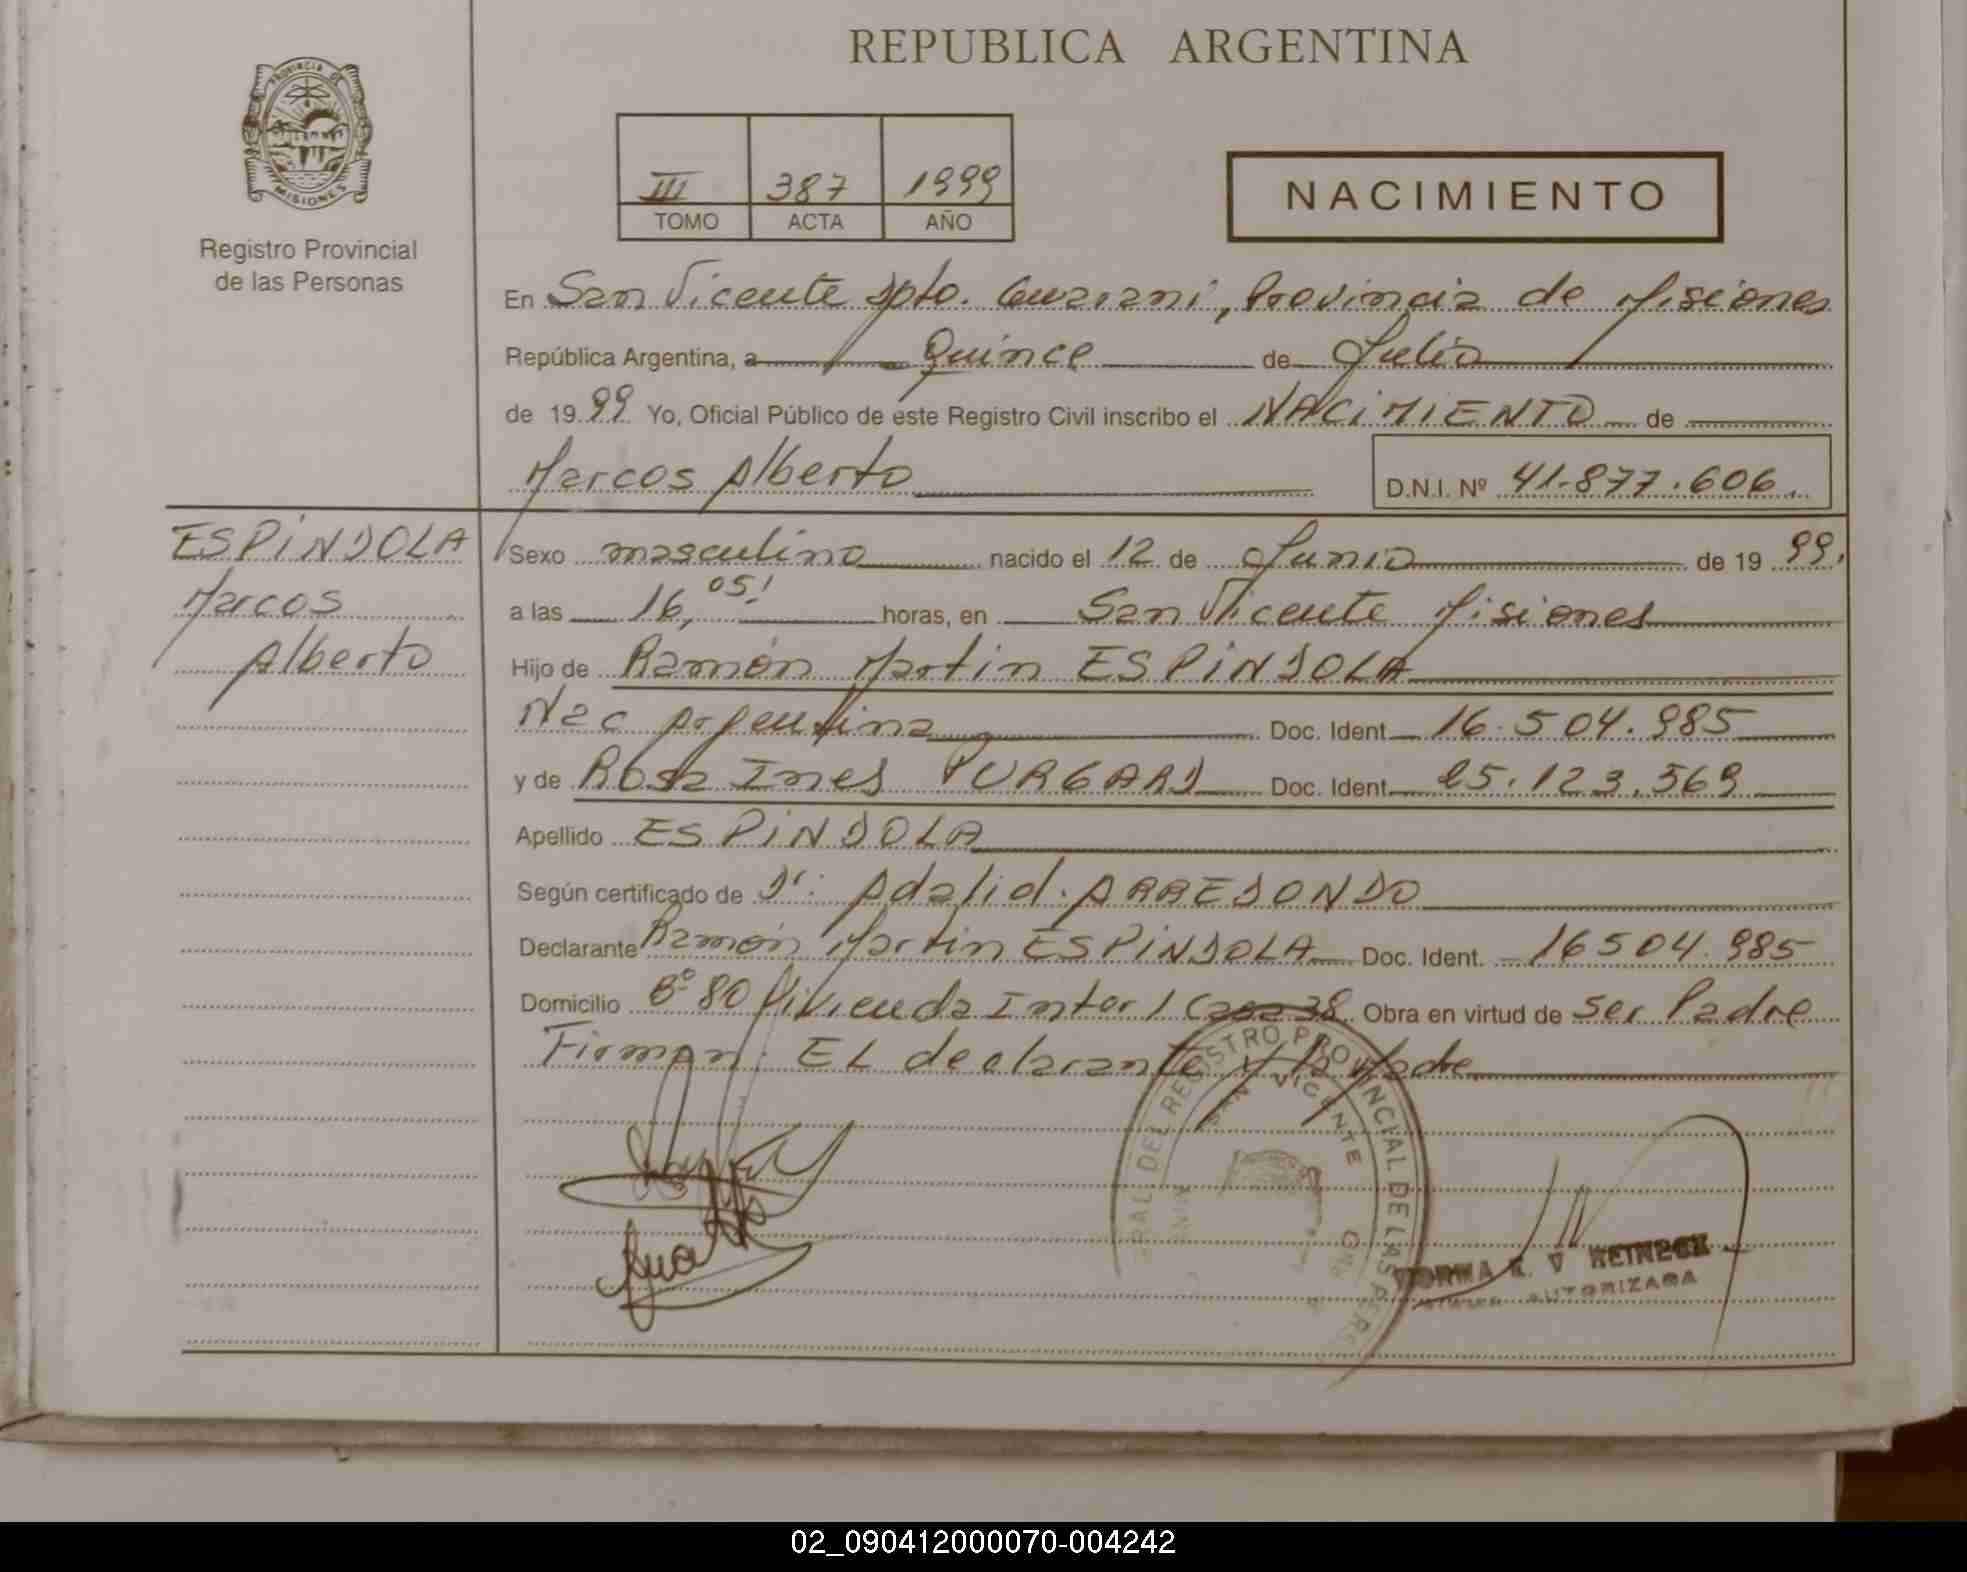 REPUBLICA ARGENTINA
PROVINCIA DE MISIONES
Registro Provincial
de las Personas
III 387 1999
TOMO ACTA AÑO
NACIMIENTO
En San Vicente Dpto. Guarani, Provincia de Misiones
República Argentina, a Quince de Julio
de 1999 Yo, Oficial Público de este Registro Civil inscribo el NACIMIENTO de
Marcos Alberto D.N.I. Nº 41.877.606.
ESPINDOLA
Marcos
Alberto
Sexo masculino nacido el 12 de Junio de 1999.
a las 16,05' horas, en San Vicente Misiones
Hijo de Ramón Martin ESPINDOLA
Nac Argentina Doc. Ident. 16.504.985
y de Rosa Ines PURGARD Doc. Ident. 25.123.569
Apellido ESPINDOLA
Según certificado de Dr: Adalid. ARREDONDO
Declarante Ramón Martin ESPINDOLA Doc. Ident. 16504.985
Domicilio Bº 80 Vivienda Inter 1 Casa 38 Obra en virtud de Ser Padre
Firman: EL declarante y la Madre
DEL REGISTRO PROVINCIAL DE LAS PERS
SAN VICENTE
NORMA REINECK
AUTORIZADA
02_090412000070-004242